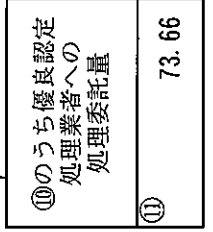 ⑩のうち優良認定
処理業者への
処理委託量
⑪
73.66